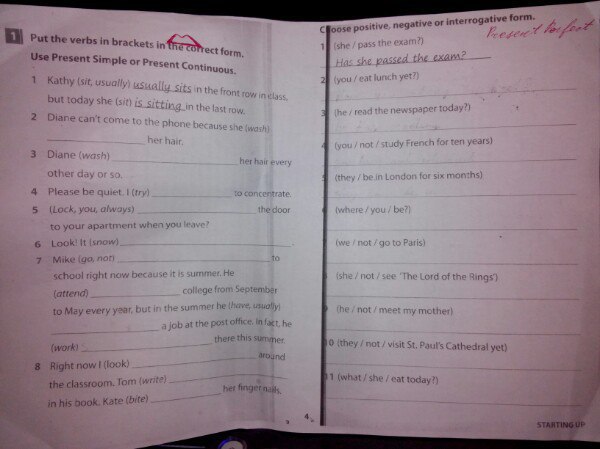 1 Put the verbs in brackets in the correct form.
Use Present Simple or Present Continuous.
1 Kathy (sit, usually) usually sits in the front row in class,
but today she (sit) is sitting in the last row.
2 Diane can't come to the phone because she (wash)
her hair.
3 Diane (wash) her hair every
other day or so.
4 Please be quiet. I (try) to concentrate.
5 (Lock, you, always) the door
to your apartment when you leave?
6 Look! It (snow)
7 Mike (go, not) to
school right now because it is summer. He
(attend) college from September
to May every year, but in the summer he (have, usually)
a job at the post office. In fact, he
(work) there this summer.
8 Right now I (look) around
the classroom. Tom (write)
in his book. Kate (bite) her finger nails.
4
Choose positive, negative or interrogative form.
Present Perfect
1 (she / pass the exam?)
Has she passed the exam?
2 (you / eat lunch yet?)
3 (he / read the newspaper today?)
4 (you / not / study French for ten years)
5 (they / be in London for six months)
(where / you / be?)
(we / not / go to Paris)
(she / not / see 'The Lord of the Rings')
(he / not / meet my mother)
10 (they / not / visit St. Paul's Cathedral yet)
11 (what / she / eat today?)
STARTING UP